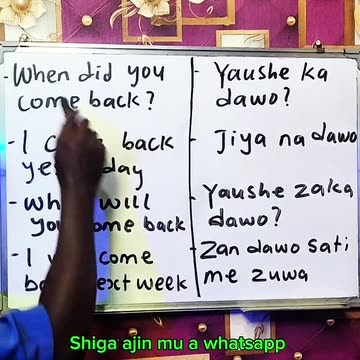 - When did you
come back?
- I back
yes day
- wh will
you come back
- I come
ba next week
- Yaushe ka
dawo?
- Jiya na dawo
- Yaushe zaka
dawo?
- Zan dawo sati
me zuwa
Shiga ajin mu a whatsapp